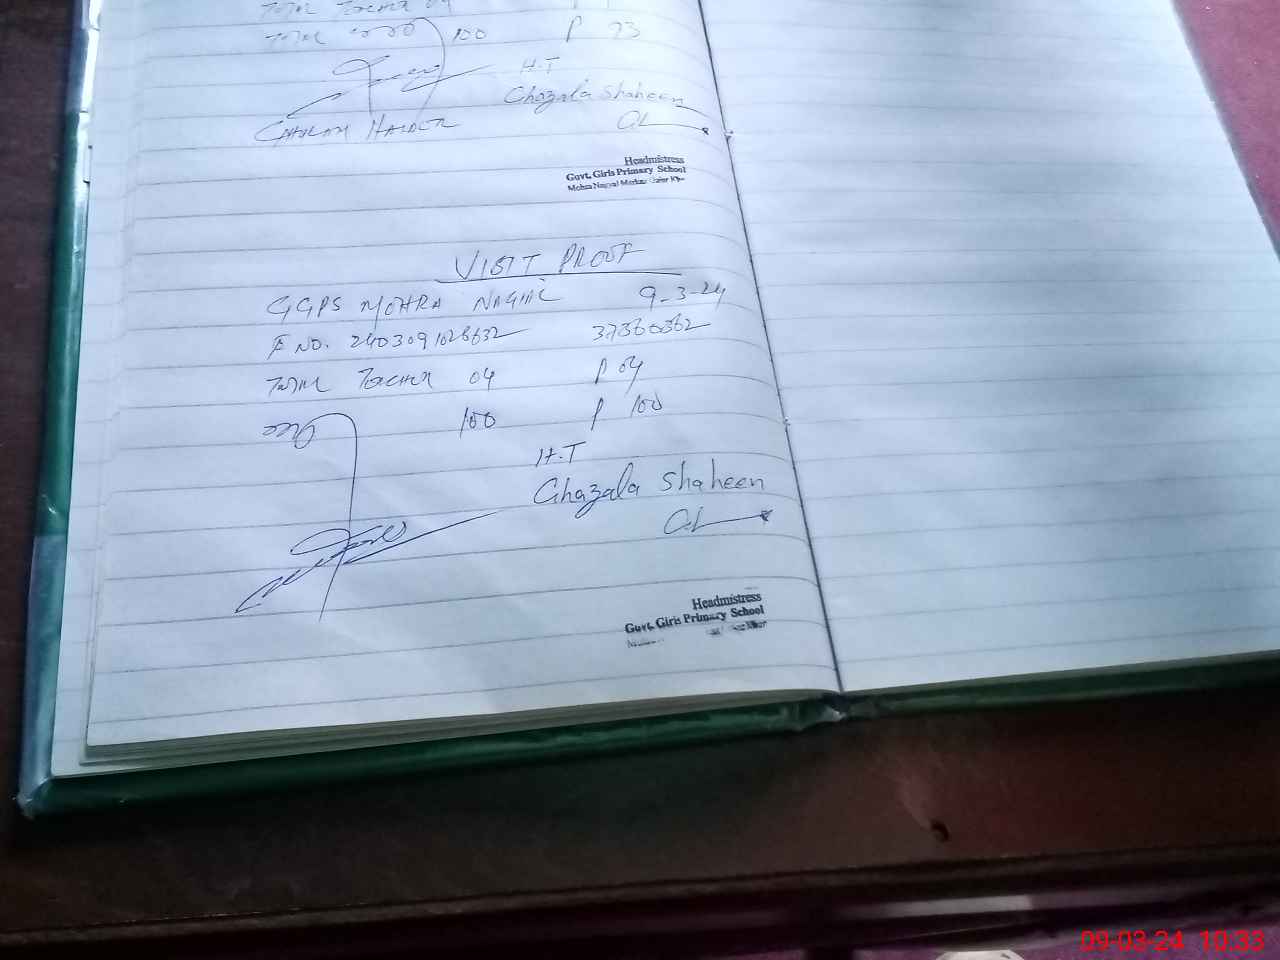 Total Teacher 04
Total 100 P 93
H.T
Ghazala Shaheen
Headmistress
Govt. Girls Primary School
Mohra Nagyal Markaz
VISIT PROOF
GGPS MOHRA NAGIAL 9-3-24
E NO. 2403091028632 37360362
Total Teacher 04 P 04
100 P 100
H.T
Ghazala Shaheen
Headmistress
Govt. Girls Primary School
09-03-24 10:33